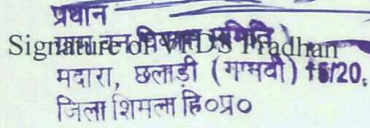 प्रधान
ग्राम वन विकास समिति
Signature of VFDS Pradhan
मदारा, छलाड़ी (गाम्मवी) 15/20,
जिला शिमला हि०प्र०